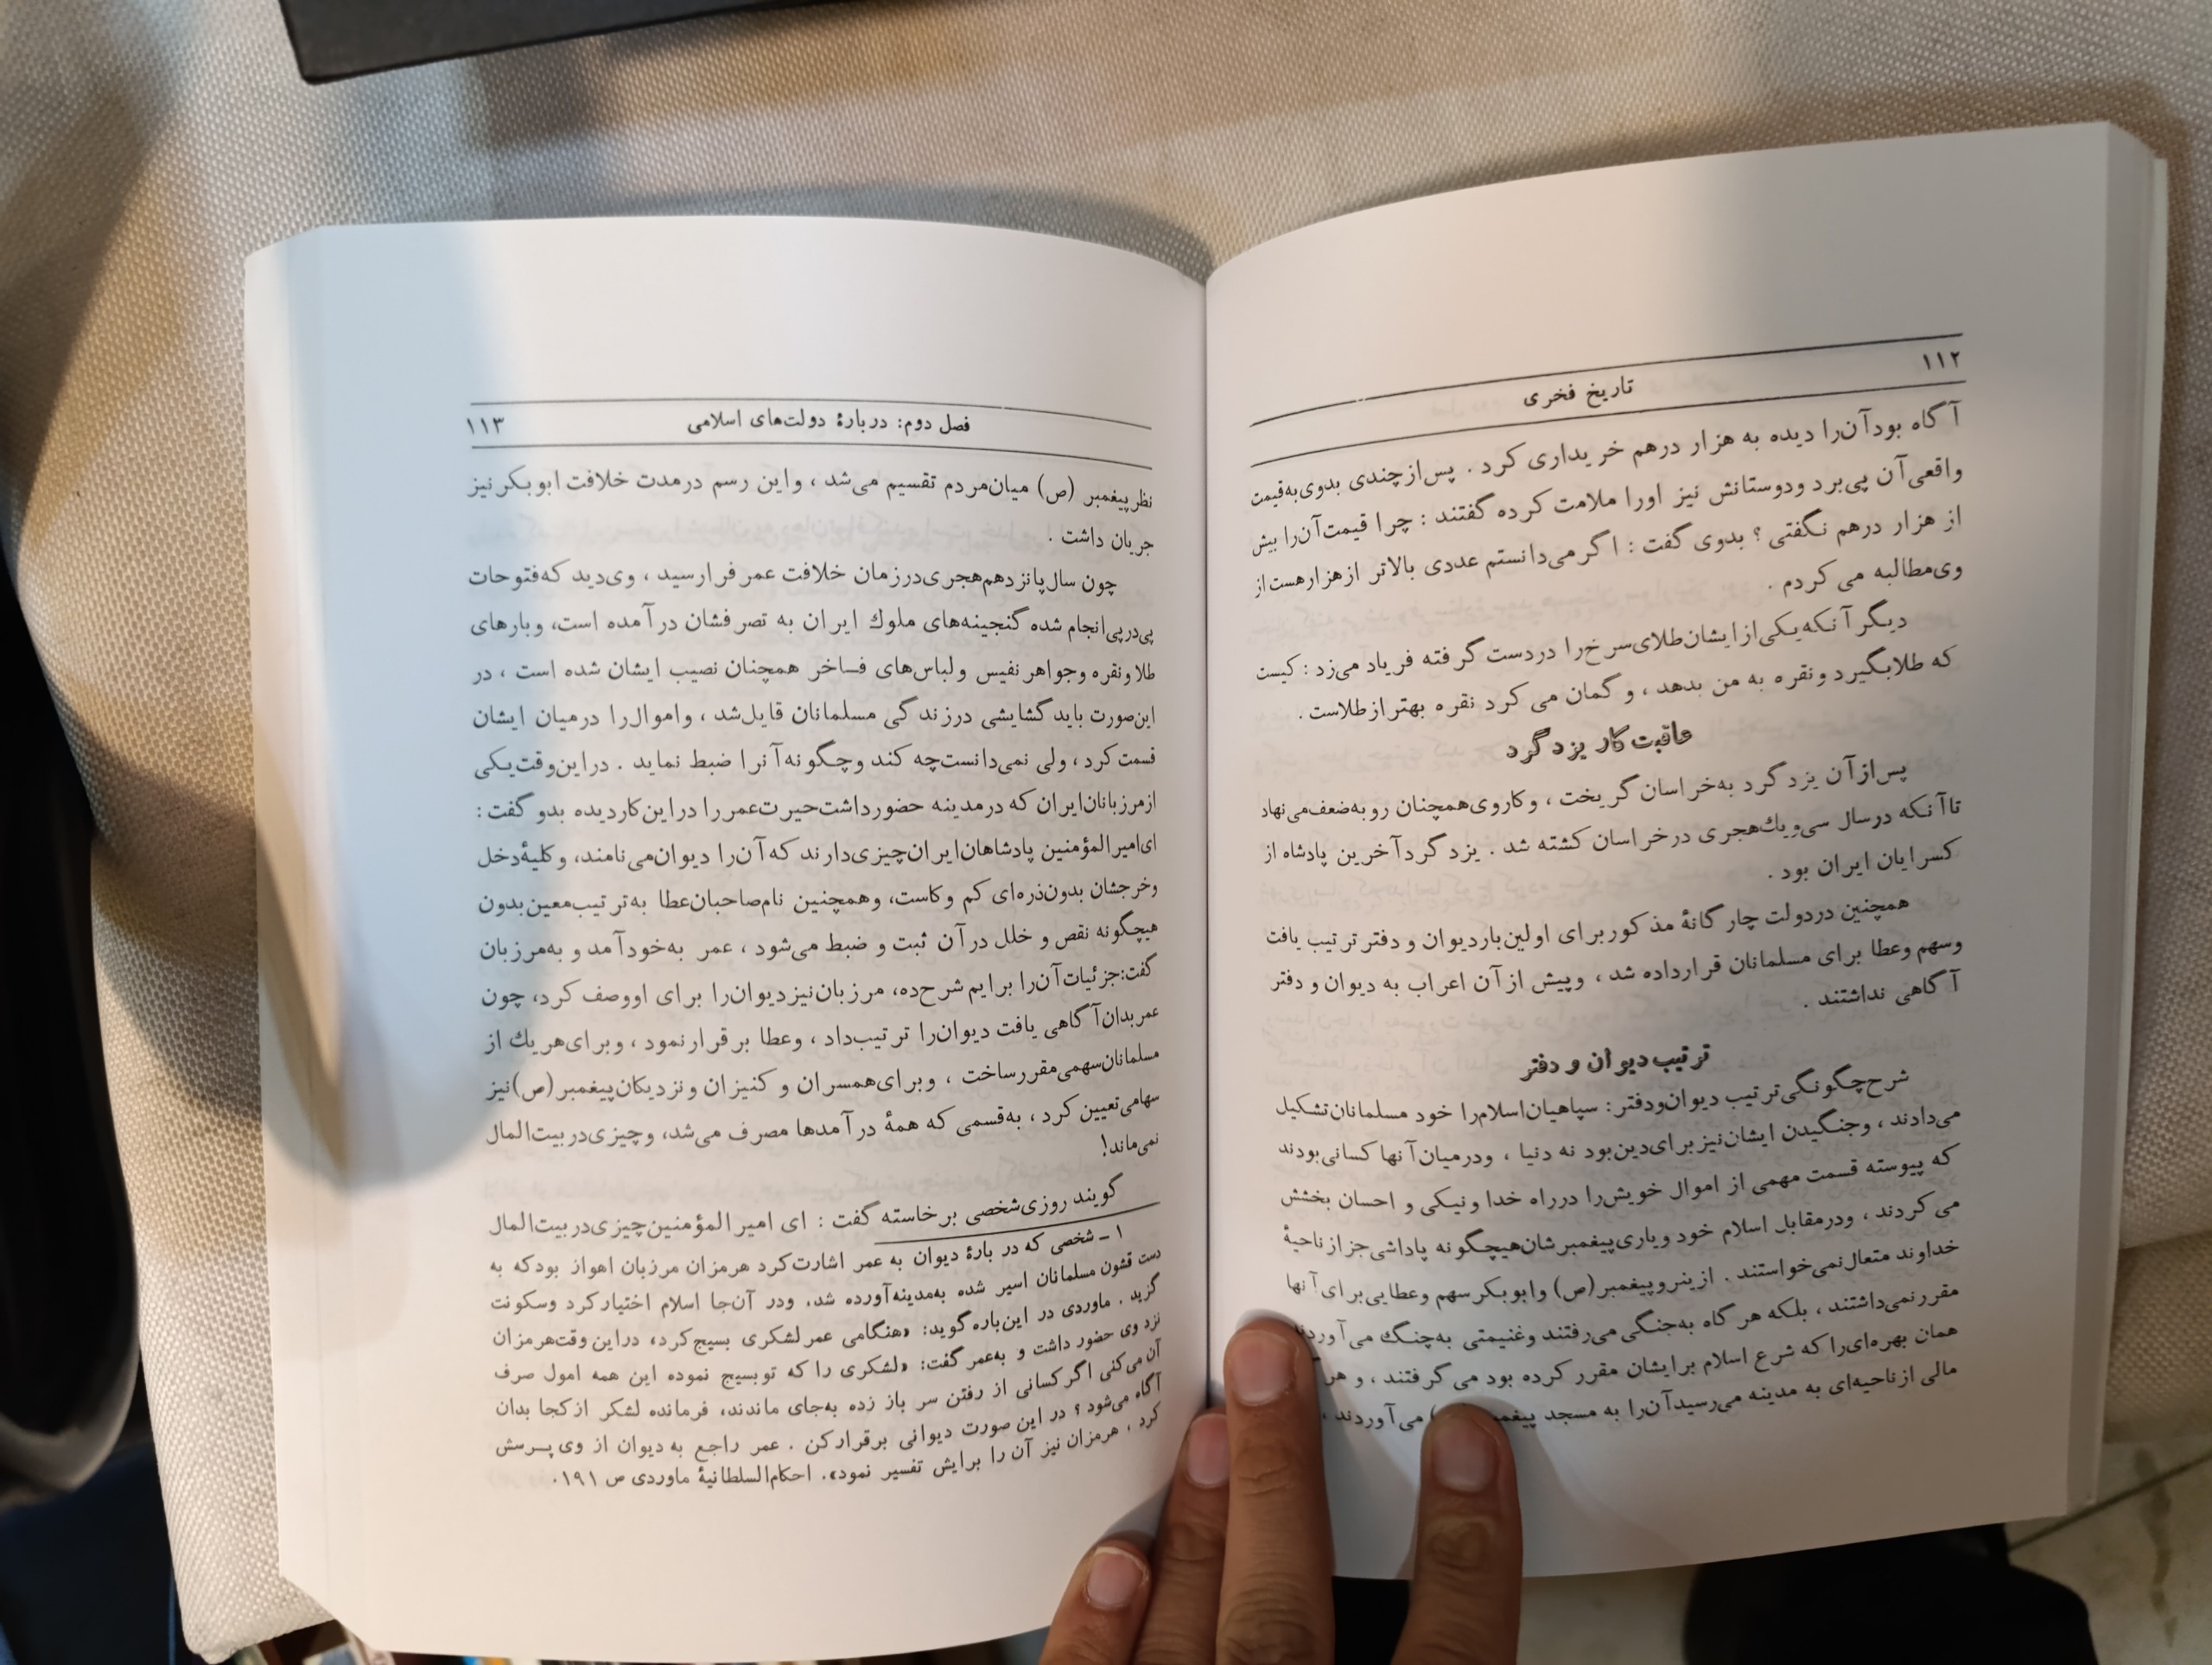 ۱۱۲
تاریخ فخری
آگاه بود آن‌را دیده به هزار درهم خریداری کرد . پس‌از چندی بدوی به‌قیمت
واقعی آن پی‌برد ودوستانش نیز اورا ملامت کرده گفتند : چرا قیمت آن‌را بیش
از هزار درهم نگفتی ؟ بدوی گفت : اگر می‌دانستم عددی بالاتر ازهزارهست از
وی‌مطالبه می کردم .
دیگر آنکه یکی‌از ایشان‌طلای سرخ را دردست گرفته فریاد می‌زد : کیست
که طلابگیرد ونقره به من بدهد ، و گمان می کرد نقره بهتر ازطلاست .
عاقبت کار یزد گرد
پس‌از آن یزد گرد به‌خراسان گریخت ، وکاروی همچنان رو به‌ضعف‌می‌نهاد
تا آنکه درسال سی‌ویك‌هجری درخراسان کشته شد . یزد گرد آخرین پادشاه از
کسرایان ایران بود .
همچنین دردولت چار گانهٔ مذ کور برای اولین‌بار دیوان و دفتر ترتیب یافت
وسهم وعطا برای مسلمانان قرارداده شد ، وپیش از آن اعراب به دیوان و دفتر
آ گاهی نداشتند .
ترتیب دیوان و دفتر
شرح‌چگونگی ترتیب دیوان‌ودفتر : سپاهیان‌اسلام‌را خود مسلمانان‌تشکیل
می‌دادند ، وجنگیدن ایشان‌نیز برای‌دین‌بود نه دنیا ، ودرمیان آنها کسانی‌بودند
که پیوسته قسمت مهمی از اموال خویش‌را درراه خدا ونیکی و احسان بخشش
می کردند ، ودرمقابل اسلام خود ویاری‌پیغمبرشان‌هیچگونه پاداشی‌جز ازناحیهٔ
خداوند متعال‌نمی‌خواستند . ازینروپیغمبر (ص) وابوبکر سهم وعطایی برای آنها
مقررنمی‌داشتند ، بلکه هر گاه به‌جنگی می‌رفتند وغنیمتی به‌چنگ می آوردند
همان بهره‌ای‌را که شرع اسلام برایشان مقرر کرده بود می گرفتند ، و هر
مالی ازناحیه‌ای به مدینه می‌رسید آن‌را به مسجد می آوردند ،
فصل دوم: دربارهٔ دولت‌های اسلامی
۱۱۳
نظر پیغمبر (ص) میان‌مردم تقسیم می‌شد ، واین رسم درمدت خلافت ابوبکر نیز
جریان داشت .
چون سال‌پانزدهم‌هجری‌درزمان خلافت عمر فرارسید ، وی‌دید که‌فتوحات
پی‌درپی‌انجام شده گنجینه‌های ملوك ایران به تصرفشان در آمده است، وبارهای
طلا ونقره وجواهر نفیس ولباس‌های فـاخر همچنان نصیب ایشان شده است ، در
این‌صورت باید گشایشی درزندگی مسلمانان قایل‌شد ، واموال‌را درمیان ایشان
قسمت کرد ، ولی نمی‌دانست‌چه کند وچگونه آنرا ضبط نماید . دراین‌وقت‌یکی
ازمرزبانان‌ایران که درمدینه حضورداشت‌حیرت‌عمررا دراین‌کاردیده بدو گفت :
ای‌امیرالمؤمنین پادشاهان‌ایران‌چیزی‌دارند که آن‌را دیوان‌می‌نامند، وکلیهٔ دخل
وخرجشان بدون‌ذره‌ای کم وکاست، وهمچنین نام‌صاحبان‌عطا به‌ترتیب‌معین‌بدون
هیچگونه نقص و خلل در آن ثبت و ضبط می‌شود ، عمر به‌خود آمد و به‌مرزبان
گفت:جزئیات آن‌را برایم شرح‌ده، مرزبان‌نیز دیوان‌را برای اووصف کرد، چون
عمربدان آ گاهی یافت دیوان‌را ترتیب‌داد ، وعطا برقرارنمود ، وبرای هریك از
مسلمانان‌سهمی‌مقررساخت ، وبرای همسران و کنیزان ونزدیکان‌پیغمبر (ص) نیز
سهامی‌تعیین کرد ، به‌قسمی که همهٔ در آمدها مصرف می‌شد، وچیزی‌دربیت‌المال
نمی‌ماند!
گویند روزی‌شخصی برخاسته گفت : ای امیرالمؤمنین‌چیزی‌دربیت‌المال
۱ ـ شخصی که در بارهٔ دیوان به عمر اشارت‌کرد هرمزان مرزبان اهواز بودکه به
دست قشون مسلمانان اسیر شده به‌مدینه آورده شد، ودر آن‌جا اسلام اختیارکرد وسکونت
گزید . ماوردی در این‌باره گوید: «هنگامی عمر لشکری بسیج‌کرد، دراین وقت‌هرمزان
نزد وی حضور داشت و به‌عمر گفت: «لشکری را که توبسیج نموده این همه امول صرف
آن می‌کنی اگر کسانی از رفتن سر باز زده به‌جای ماندند، فرمانده لشکر ازکجا بدان
آگاه می‌شود ؟ در این صورت دیوانی برقرارکن . عمر راجع به دیوان از وی پـرسش
کرد ، هرمزان نیز آن را برایش تفسیر نمود». احکام‌السلطانیهٔ ماوردی ص ۱۹۱.